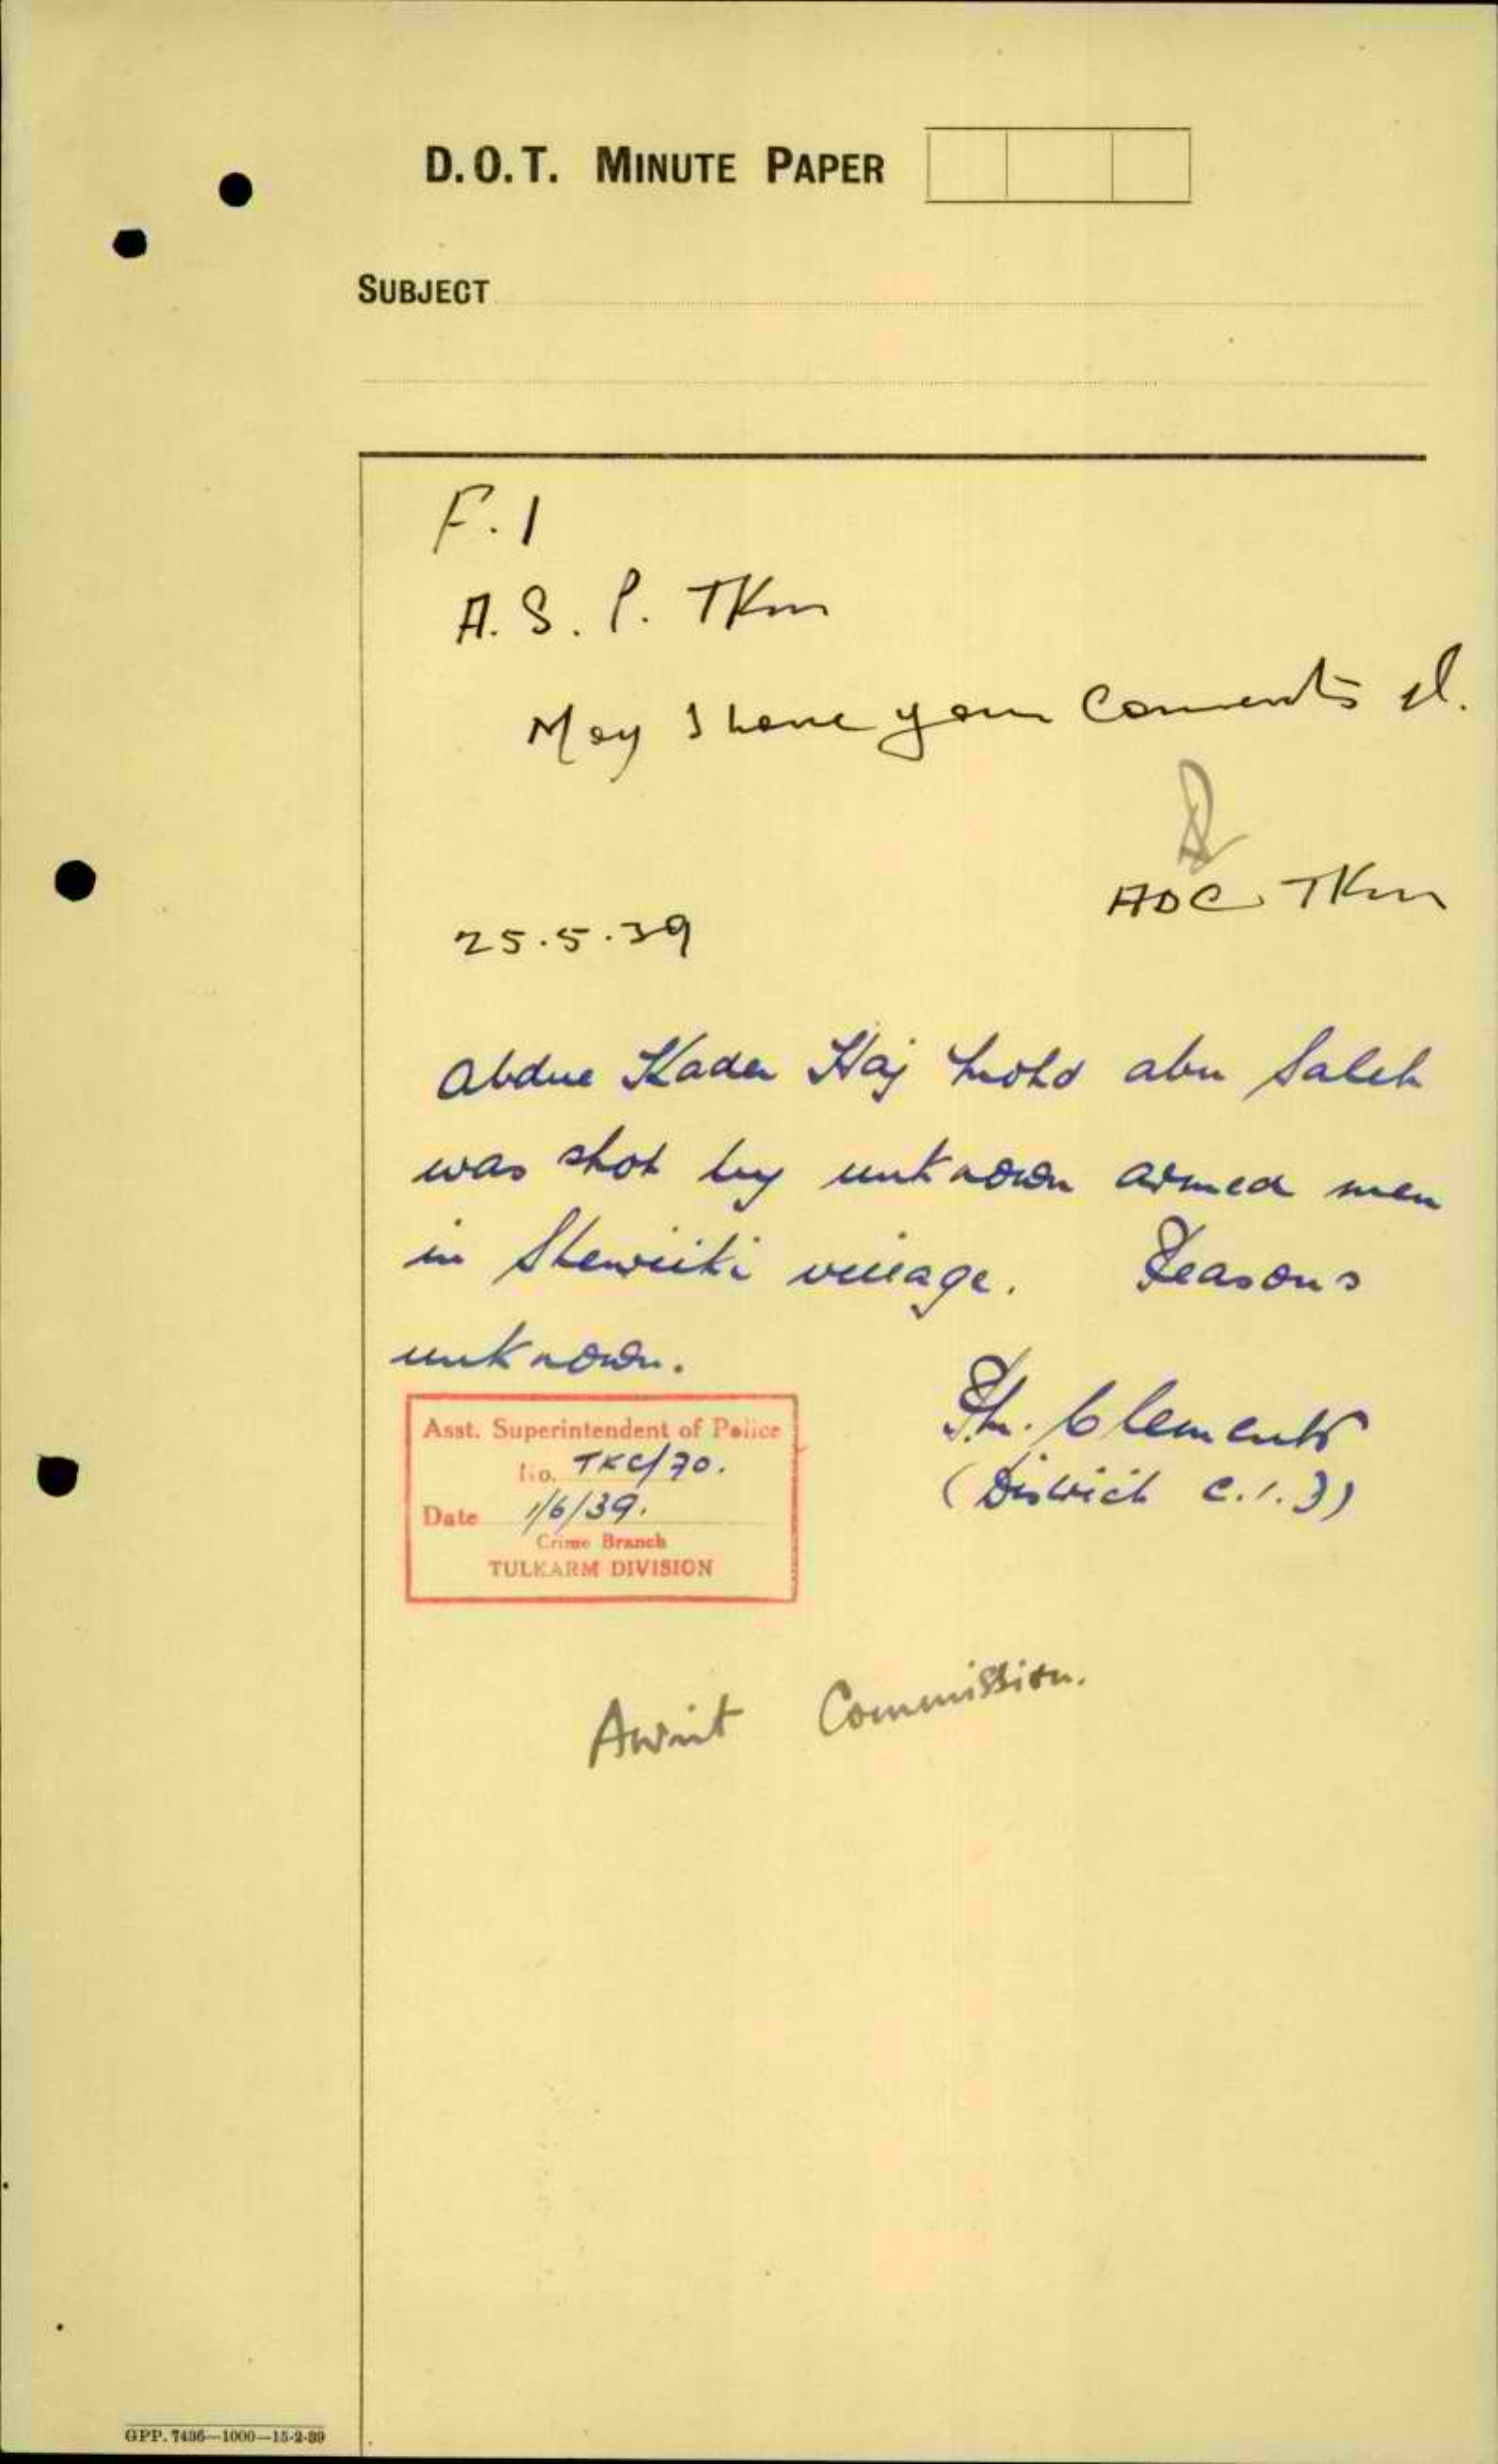 D.O.T. MINUTE PAPER
SUBJECT
F. 1
A. S. P. TKm
May I have your Coments pl.
ADC TKm
25.5.39
Abdul Kader Haj Mohd abu Saleh
was shot by unknown armed men
in Sheweiki village. Reasons
unknown.
Clements
(District C.I.D)
Asst. Superintendent of Police
No. TKC/70.
Date 1/6/39.
Crime Branch
TULKARM DIVISION
Await Commission.
GPP. 7436—1000—15-2-39